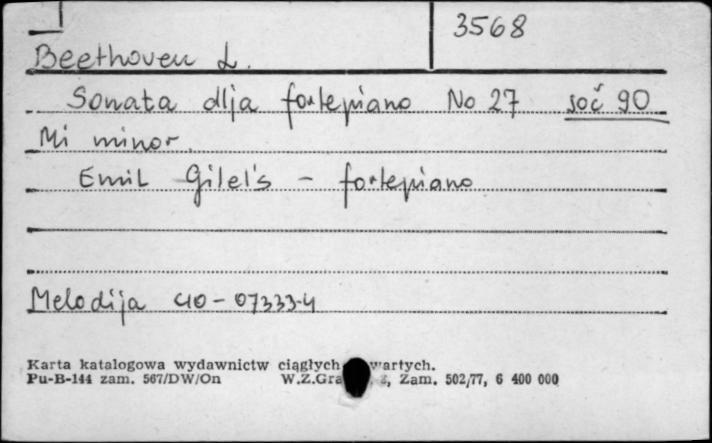 3568
Beethoven L.
Sonata dlja fortepiano No 27 soč 90
Mi minor.
Emil Gilel's - fortepiano
Melodija C10-07333-4
Karta katalogowa wydawnictw ciągłych
Pu-B-144 zam. 567/DW/On W.Z.Gra Zam. 502/77, 6 400 000